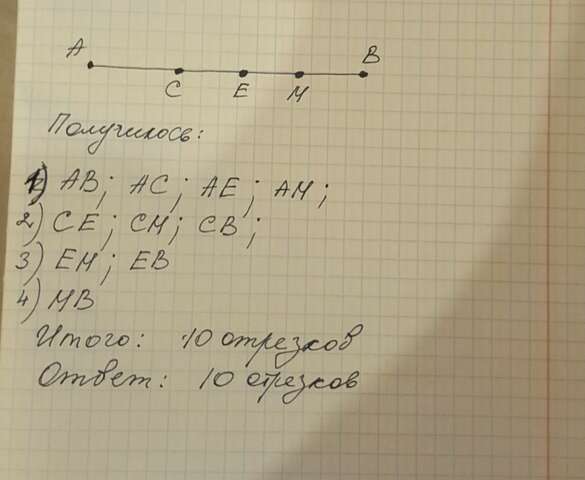 A B
C E M
Получилось:
1) AB; AC; AE; AM;
2) CE; CM; CB;
3) EM; EB
4) MB
Итого: 10 отрезков
Ответ: 10 отрезков